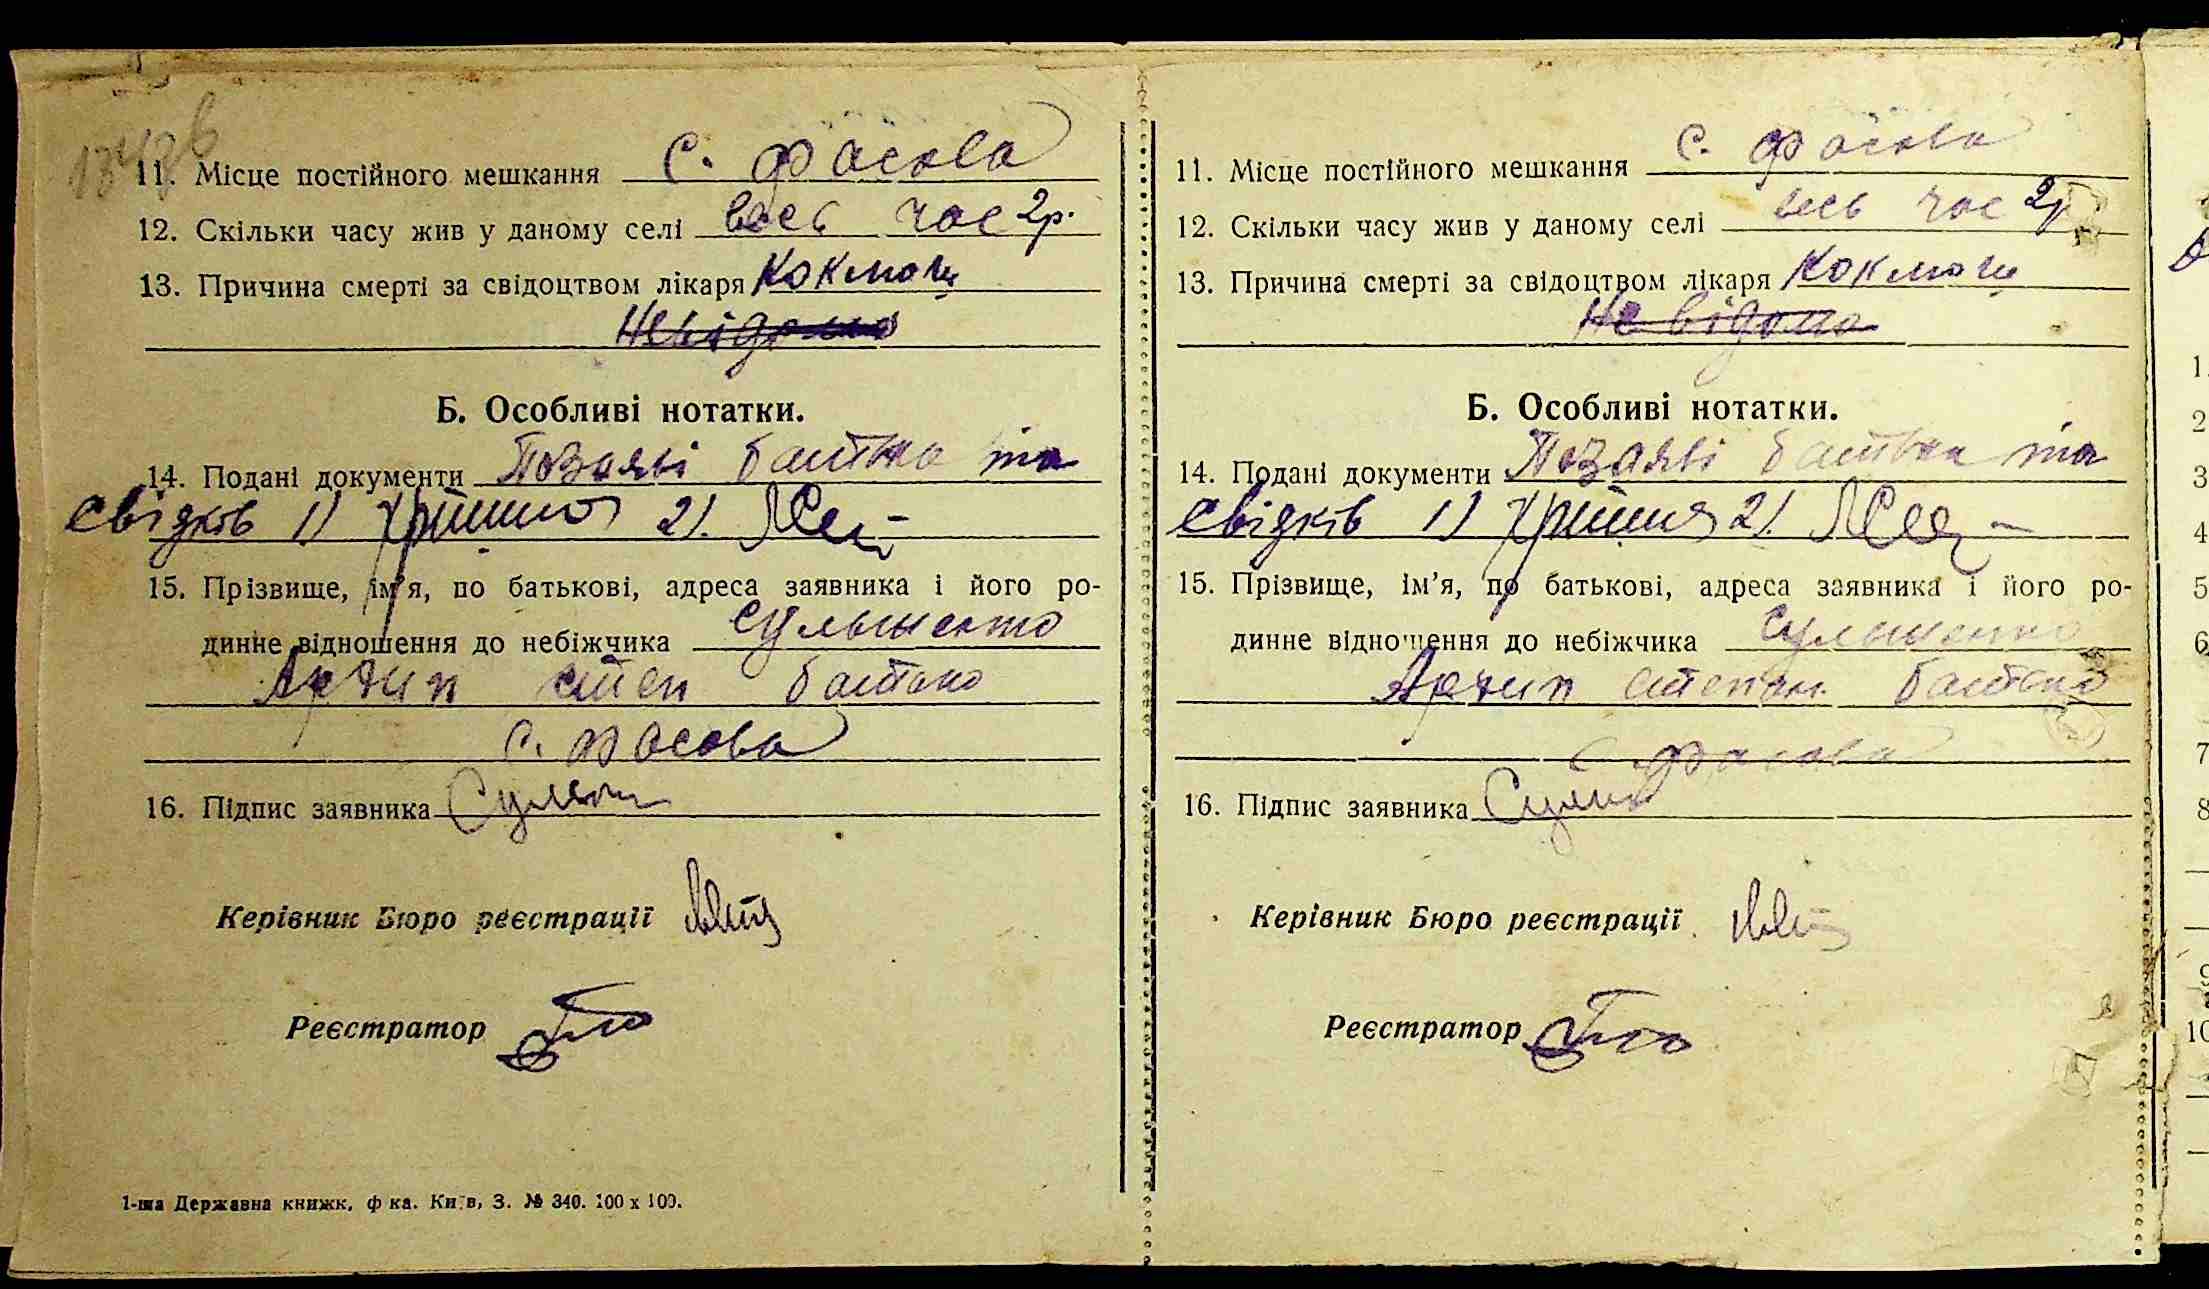 11. Місце постійного мешкання с. Фасова
12. Скільки часу жив у даному селі весь час 2р.
13. Причина смерті за свідоцтвом лікаря Коклюш
Невідомо
Б. Особливі нотатки.
14. Подані документи По заяві батька та
свідків 1) 2).
15. Прізвище, ім'я, по батькові, адреса заявника і його ро-
динне відношення до небіжчика
Архип Степ батько
с. Фасова
16. Підпис заявника
Керівник Бюро реєстрації
Реєстратор
1-ша Державна книжк. ф ка. Київ, З. № 340. 100 х 100.
11. Місце постійного мешкання с. Фасова
12. Скільки часу жив у даному селі весь час 2р
13. Причина смерті за свідоцтвом лікаря Коклюш
Не відомо
Б. Особливі нотатки.
14. Подані документи По заяві батька та
свідків 1) 2).
15. Прізвище, ім'я, по батькові, адреса заявника і його ро-
динне відношення до небіжчика
Архип Степан. батько
с Фасова
16. Підпис заявника
Керівник Бюро реєстрації
Реєстратор